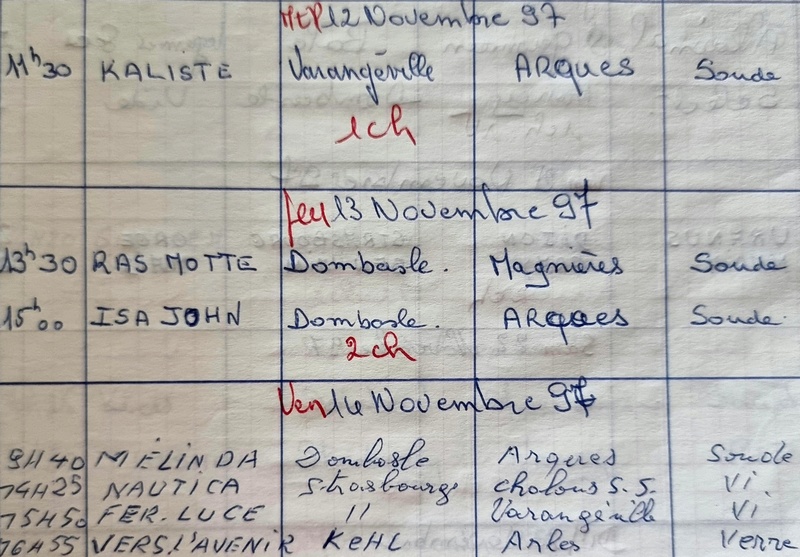 MEP 12 Novembre 97
11h30 KALISTE Varangéville ARQues Soude
1ch
Jeu 13 Novembre 97
13h30 RAS MOTTE Dombasle. Magnières Soude
15h00 ISA JOHN Dombasle. ARques Soude.
2ch
Ven 14 Novembre 97
9H40 MÉLINDA Dombasle Arques Soude
14H25 NAUTICA Strasbourg chalons S.S. Vi.
15H50 FER. LUCE " Varangéville Vi.
16H55 VERS.L'AVENIR KeHL Arles Verre